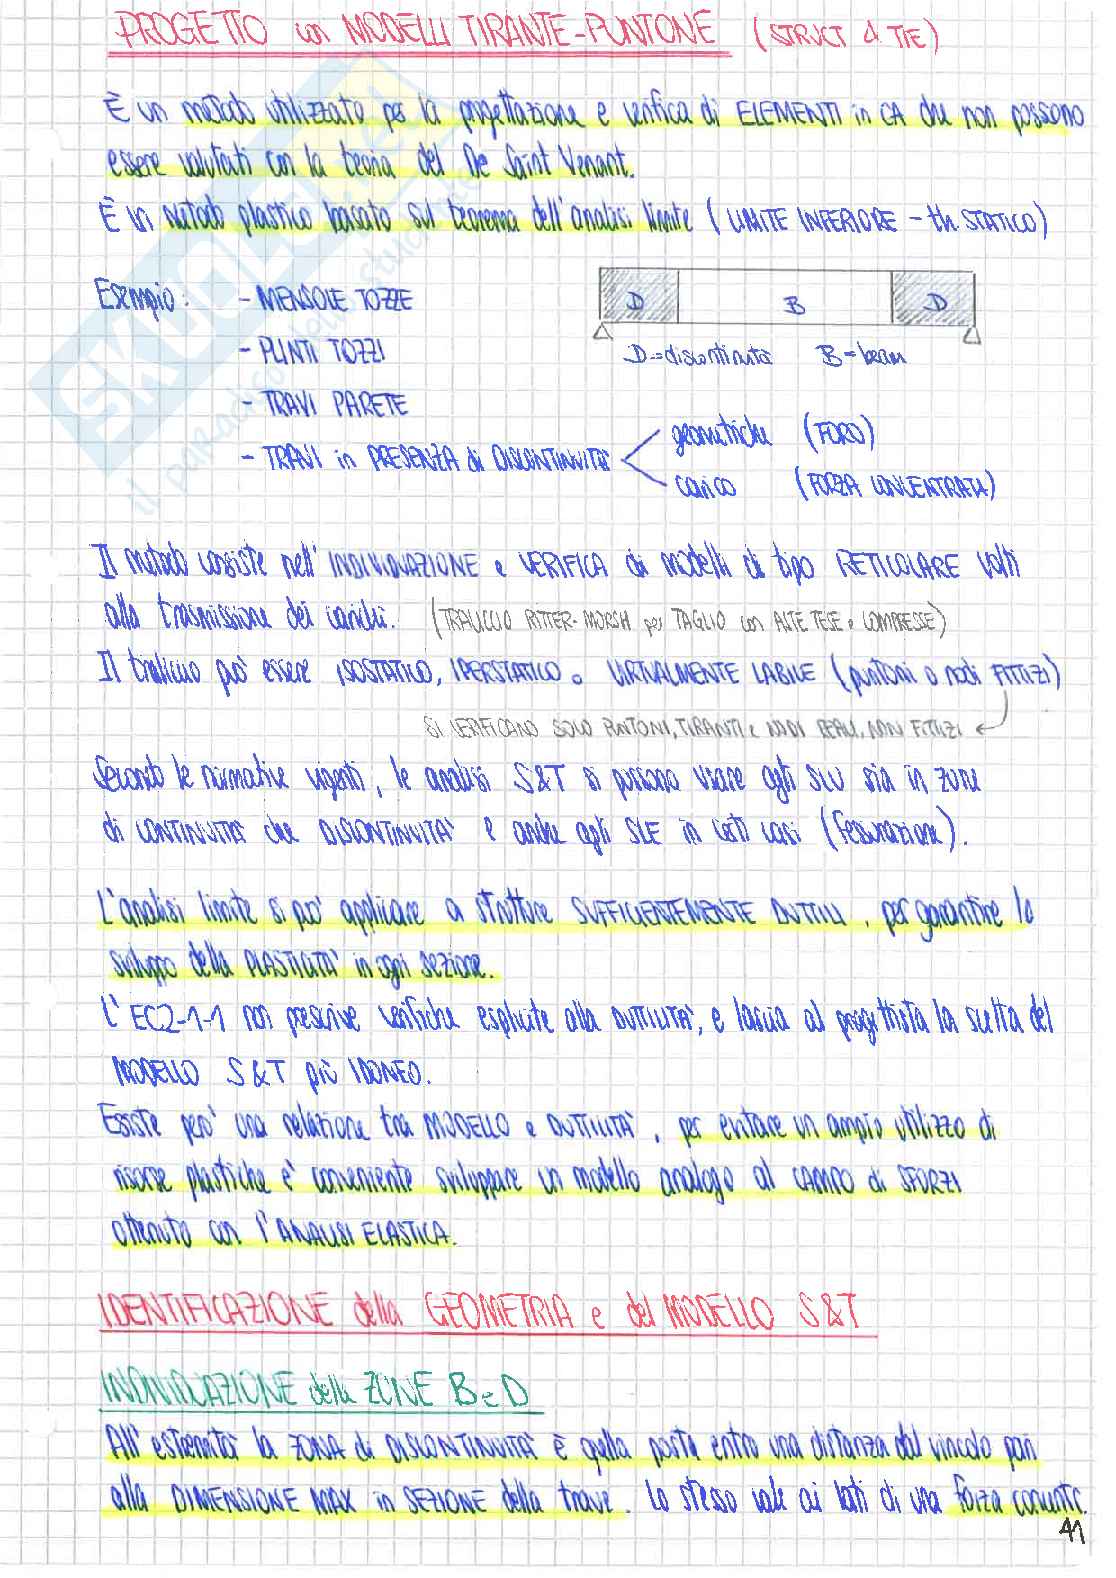 PROGETTO con MODELLI TIRANTE-PUNTONE (STRUCT & TIE)
È un metodo utilizzato per la progettazione e verifica di ELEMENTI in CA che non possono
essere valutati con la teoria del De Saint Venant.
È un metodo plastico basato sul teorema dell'analisi limite (LIMITE INFERIORE - th. STATICO)
Esempio: - MENSOLE TOZZE
D B D
- PLINTI TOZZI
D=discontinuità B=beam
- TRAVI PARETE
- TRAVI in PRESENZA di DISCONTINUITA' geometriche (FORO)
carico (FORZA CONCENTRATA)
Il metodo consiste nell'INDIVIDUAZIONE e VERIFICA di modelli di tipo RETICOLARE volti
alla trasmissione dei carichi. (TRALICCIO RITTER-MORSH per TAGLIO con ASTE TESE e COMPRESSE)
Il traliccio può essere ISOSTATICO, IPERSTATICO o VIRTUALMENTE LABILE (puntoni o nodi FITTIZI)
SI VERIFICANO SOLO PUNTONI, TIRANTI e NODI REALI, NON FITTIZI
Secondo le normative vigenti, le analisi S&T si possono usare agli SLU sia in zone
di CONTINUITA' che DISCONTINUITA' e anche agli SLE in certi casi (fessurazione).
L'analisi limite si puo' applicare a strutture SUFFICIENTEMENTE DUTTILI, per garantire lo
sviluppo della PLASTICITA' in ogni sezione.
L'EC2-1-1 non prescrive verifiche esplicite alla DUTTILITA', e lascia al progettista la scelta del
MODELLO S&T più IDONEO.
Esiste pero' una relazione tra MODELLO e DUTTILITA', per evitare un ampio utilizzo di
risorse plastiche e' conveniente sviluppare un modello analogo al CAMPO di SFORZI
ottenuto con l'ANALISI ELASTICA.
IDENTIFICAZIONE della GEOMETRIA e del MODELLO S&T
INDIVIDUAZIONE delle ZONE B e D
All'estremita' la ZONA di DISCONTINUITA' è quella posta entro una distanza dal vincolo pari
alla DIMENSIONE MAX in SEZIONE della trave. Lo stesso vale ai lati di una forza concentr.
41
SKUOLA.net
il paradiso dello studente